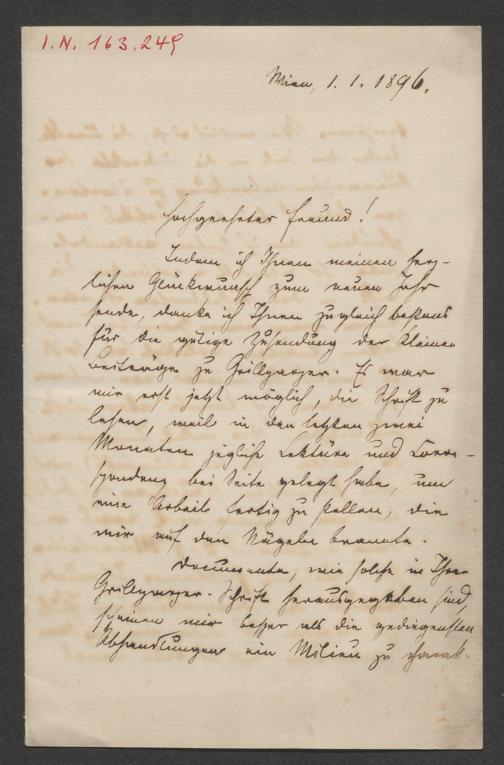 I.N. 163.249
Wien, 1. 1. 1896.
Hochgeehrter Freund!
Indem ich Ihnen meinen herz-
lichen Glückwunsch zum neuen Jahr
sende, danke ich Ihnen zugleich bestens
für die gütige Zusendung der kleinen
Beiträge zu Grillparzer. Es war
mir erst jetzt möglich, die Schrift zu
lesen, weil in den letzten zwei
Monaten jegliche Lektüre und Corre-
spondenz bei Seite gelegt habe, um
eine Arbeit fertig zu stellen, die
mir auf den Nägeln brannte.
Documente, wie solche in Ihrer
Grillparzer-Schrift herausgegeben sind,
scheinen mir besser als die gediegensten
Abhandlungen ein Milieu zu charak-